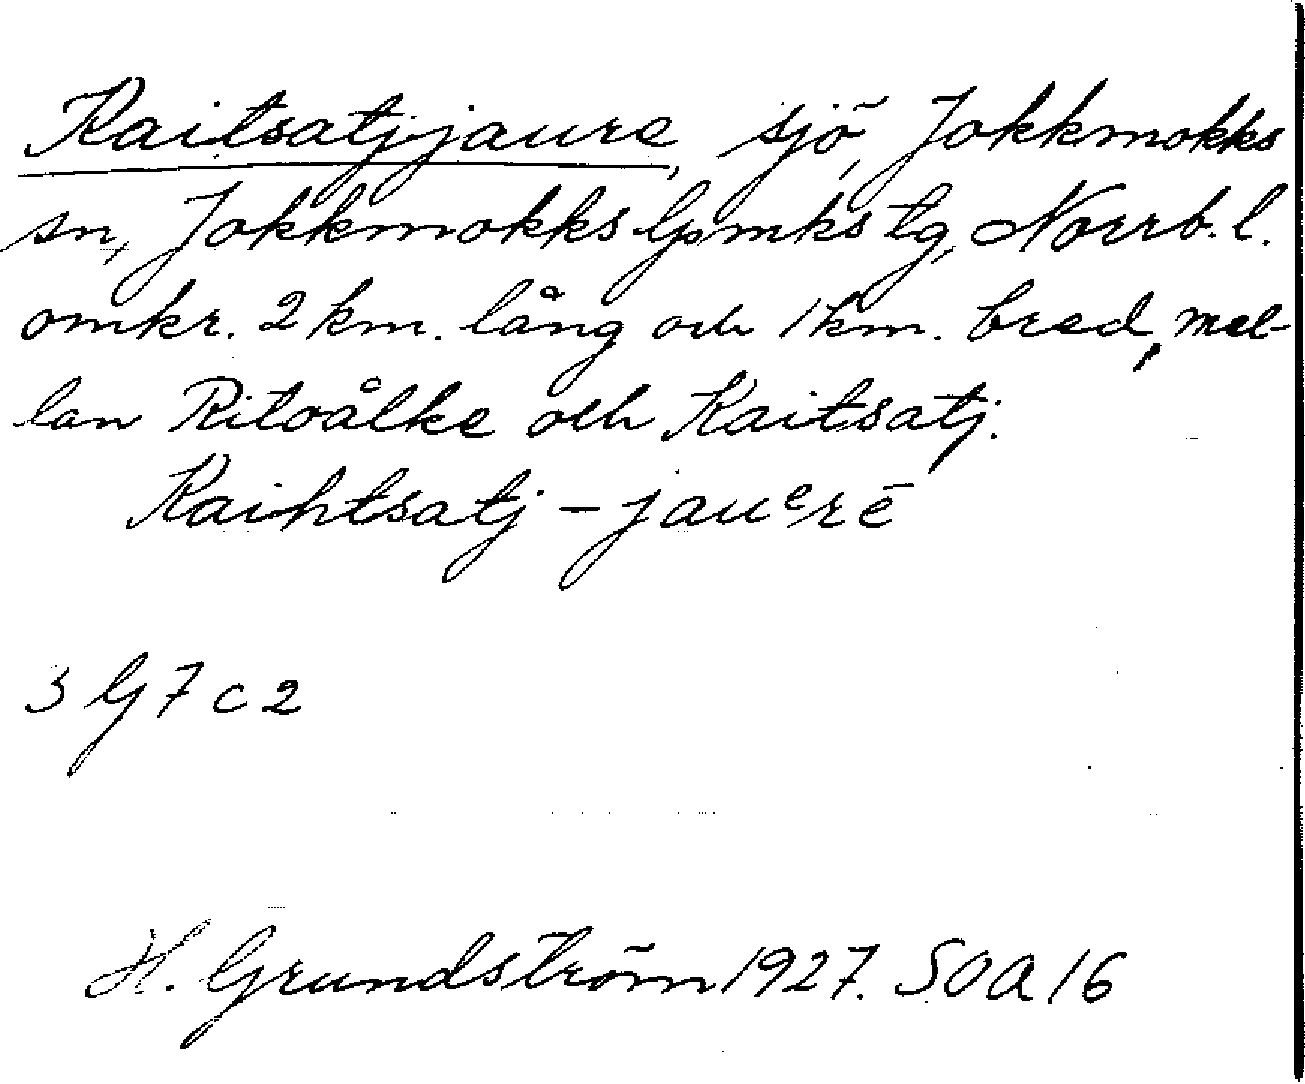 Kaitsatjjaure, sjö, Jokkmokks
sn, Jokkmokks lpmks tg, Norrb. l.
omkr. 2 km. lång och 1 km. bred, mel-
lan Ritoålke och Kaitsatj.
Kaihtsatj – jauᵉrē
3 G 7 c 2
H. Grundström 1927. SOA 16